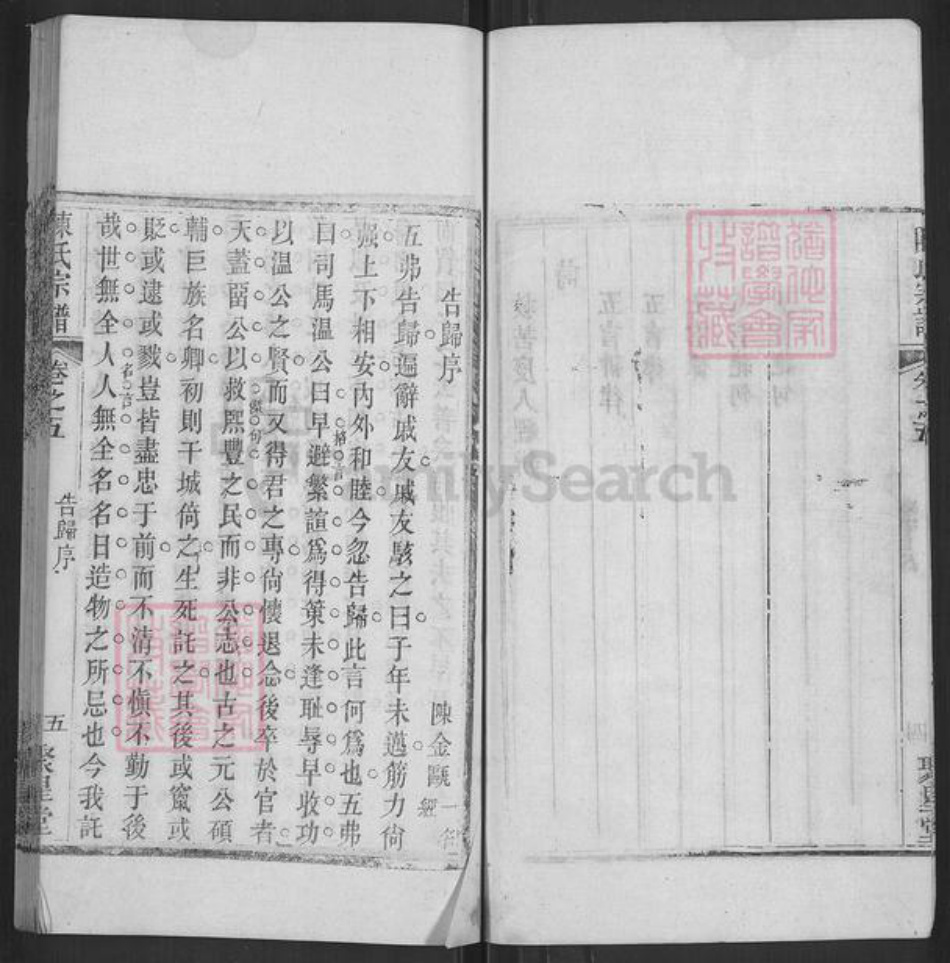 陳氏宗譜
卷之五
四
聚星堂
告歸序
陳金甌
五弗告歸遍辭戚友戚友駭之曰子年未邁筋力尚
強上下相安內外和睦今忽告歸此言何為也五弗
曰司馬溫公曰早避繁諠為得策未逢耻辱早收功
以溫公之賢而又得君之專尚懷退念後卒於官者
天蓋畱公以救熙豐之民而非公志也古之元公碩
輔巨族名卿初則干城倚之生死託之其後或竄或
貶或逮或戮豈皆盡忠于前而不清不愼不勤于後
哉世無全人人無全名名日造物之所忌也今我託
名言
陳氏宗譜
卷之五
告歸序
五
聚星堂
五言律
五言排律
FamilySearch